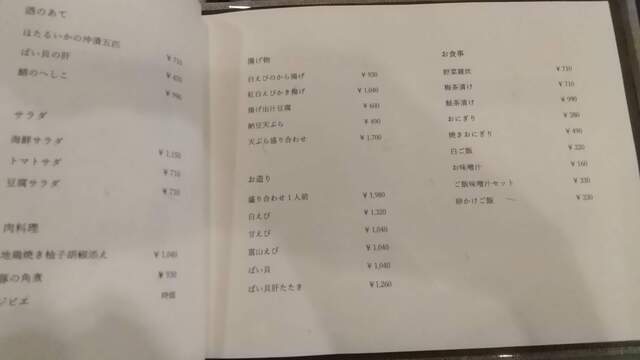 酒のあて
ほたるいかの沖漬五匹 ￥710
ばい貝の肝 ￥450
鯖のへしこ ￥990
サラダ
海鮮サラダ ￥1,150
トマトサダ ￥710
豆腐サラダ ￥710
肉料理
地鶏焼き柚子胡椒添え ￥1,040
豚の角煮 ￥930
ジビエ 時価
揚げ物
白えびのから揚げ ￥930
紅白えびかき揚げ ￥1,040
揚げ出汁豆腐 ￥600
納豆天ぷら ￥490
天ぷら盛り合わせ ￥1,700
お造り
盛り合わせ1人前 ￥1,980
白えび ￥1,320
甘えび ￥1,040
富山えび ￥1,040
ばい貝 ￥1,040
ばい貝肝たたき ￥1,260
お食事
野菜雑炊 ￥710
梅茶漬け ￥710
鮭茶漬け ￥990
おにぎり ￥380
焼きおにぎり ￥490
白ご飯 ￥220
お味噌汁 ￥160
ご飯味噌汁セット ￥330
卵かけご飯 ￥330